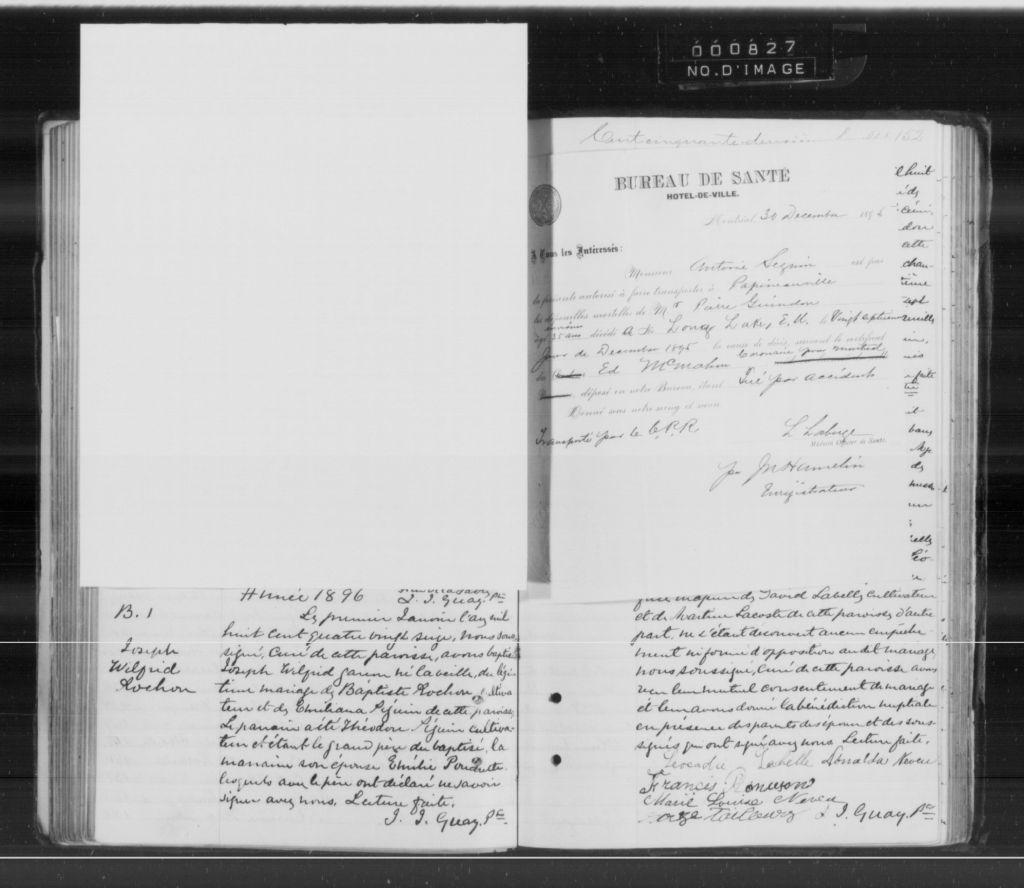 000827
NO. D'IMAGE
BUREAU DE SANTÉ
HOTEL-DE-VILLE.
Montréal, 30 Decembre 1895
A Tous les Intéressés:
Monsieur Antoine Seguin est par
les présentes autorisé à faire transporter à Papineauville
les dépouilles mortelles de Mr Pierre Guindon
environ
âgé 35 ans décédé A Long Lake, E.U. le Vingt septième
jour de Decembre 1895 la cause de décès, suivant le certificat
du Ed McMahon Coronaire pour Montréal
déposé en notre Bureau, étant Tué par accident
Donné sous notre seing et sceau
Transporté par le C.P.R
L Laberge
Médecin Officier de Santé.
par JnHamelin
Enrégistrateur
Année 1896
J. J. Guay. Ptre
B. 1
Joseph
Wilfrid
Rochon
Le premier Janvier l'an mil
huit cent quatre vingt seize, nous sous
signé, Curé de cette paroisse, avons baptisé
Joseph Wilfrid garçon né la veille, du légi
time mariage de Baptiste Rochon, cultiva
teur et de Emiliana Séguin de cette paroisse
Le parrain a été Théodore Séguin cultiva-
teur et étant le grand père du baptisé, la
marraine son épouse Emilie
lesquels avec le père ont déclaré ne savoir
signer avec nous. Lecture faite.
J. J. Guay. Ptre
fille majeure de David Labelle, cultivateur
et de Martine Lacoste de cette paroisse d'autre
part, ne s'étant découvert aucun empêche-
ment ni formé d'opposition au dit mariage
nous soussigné, Curé de cette paroisse avons
reçu leur mutuel consentement de mariage
et leur avons donné la bénédiction nuptiale
en présence des parents des époux et des sous-
signés qui ont signé avec nous. Lecture faite.
Léocadie Labelle Donalda Neveu
Francis
Marie Louise Neveu
J. J. Guay. Ptre